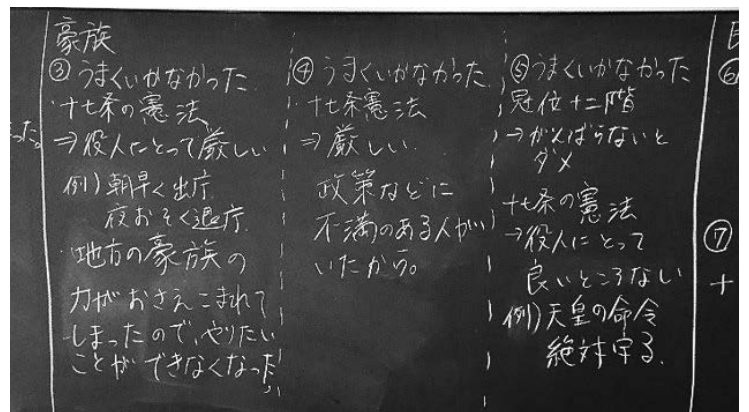 った。
豪族
③うまくいかなかった
・十七条の憲法
⇒役人にとって厳しい
例)朝早く出庁
夜おそく退庁
・地方の豪族の
力がおさえこまれて
しまったので、やりたい
ことができなくなった。
④うまくいかなかった
十七条憲法
⇒厳しい
政策などに
不満のある人が
いたから。
⑤うまくいかなかった
冠位十二階
→がんばらないと
ダメ
十七条の憲法
→役人にとって
良いところない
例)天皇の命令
絶対守る.
⑥
⑦
十